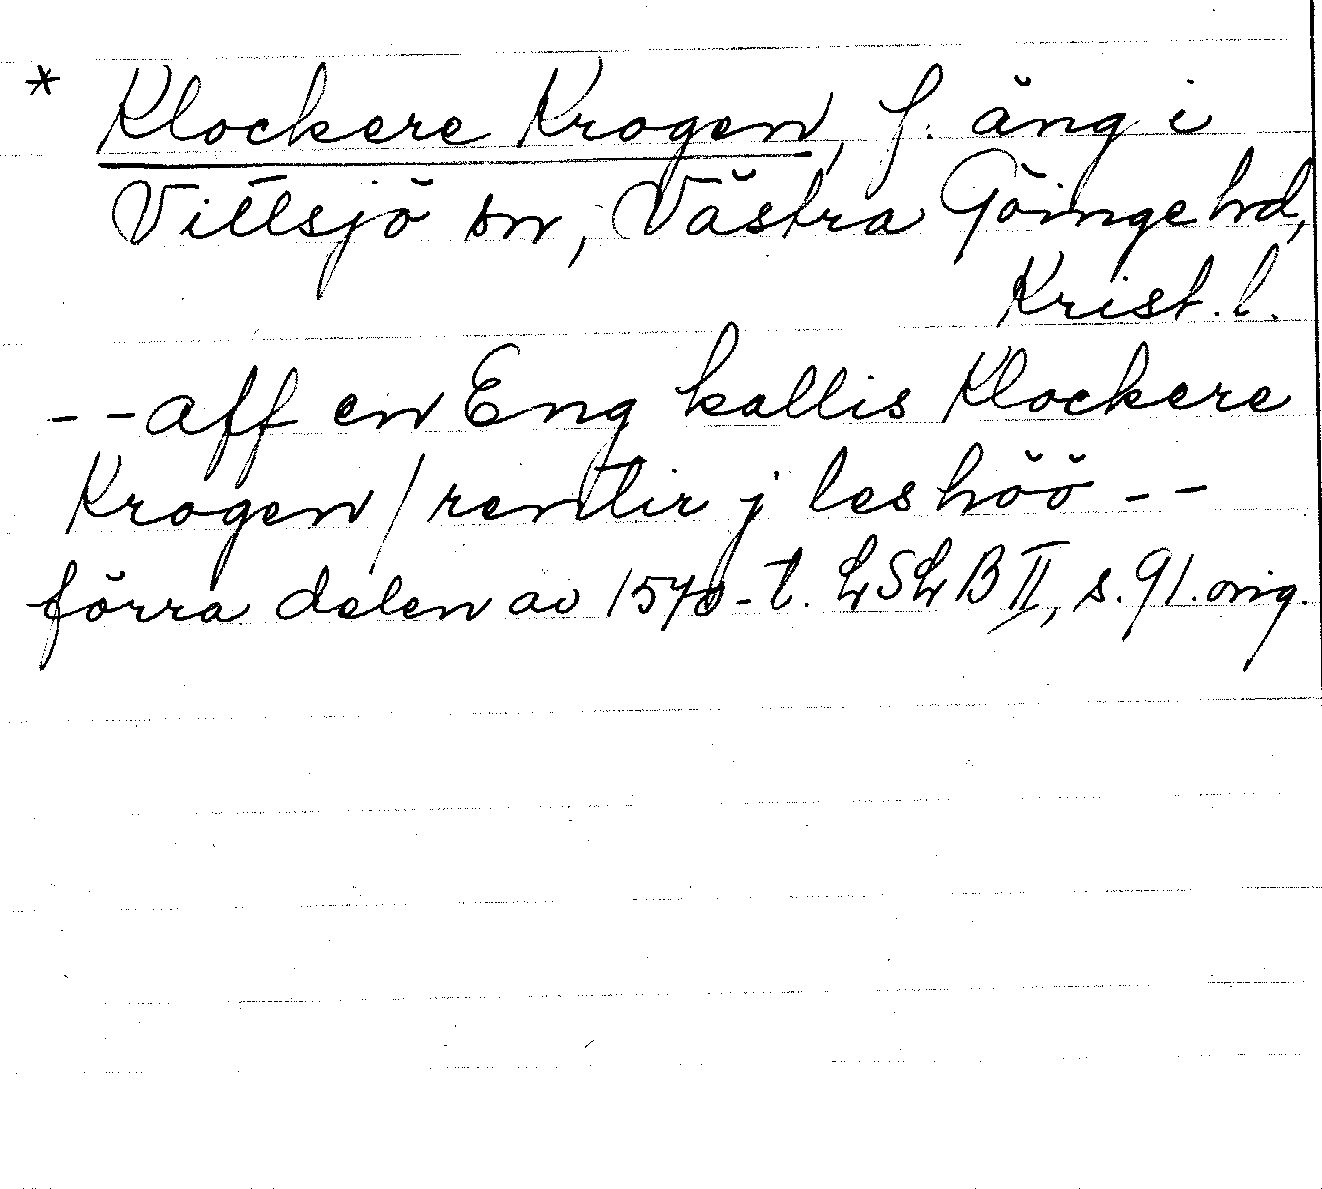 * Klockere Krogen, f. äng i
Vittsjö sn, Västra Göinge hd,
Krist. l.
- - aff en Eng kallis Klockere
Krogen / rentir j les höö - -
förra delen av 1570-t. LSLB II, s. 91. orig.